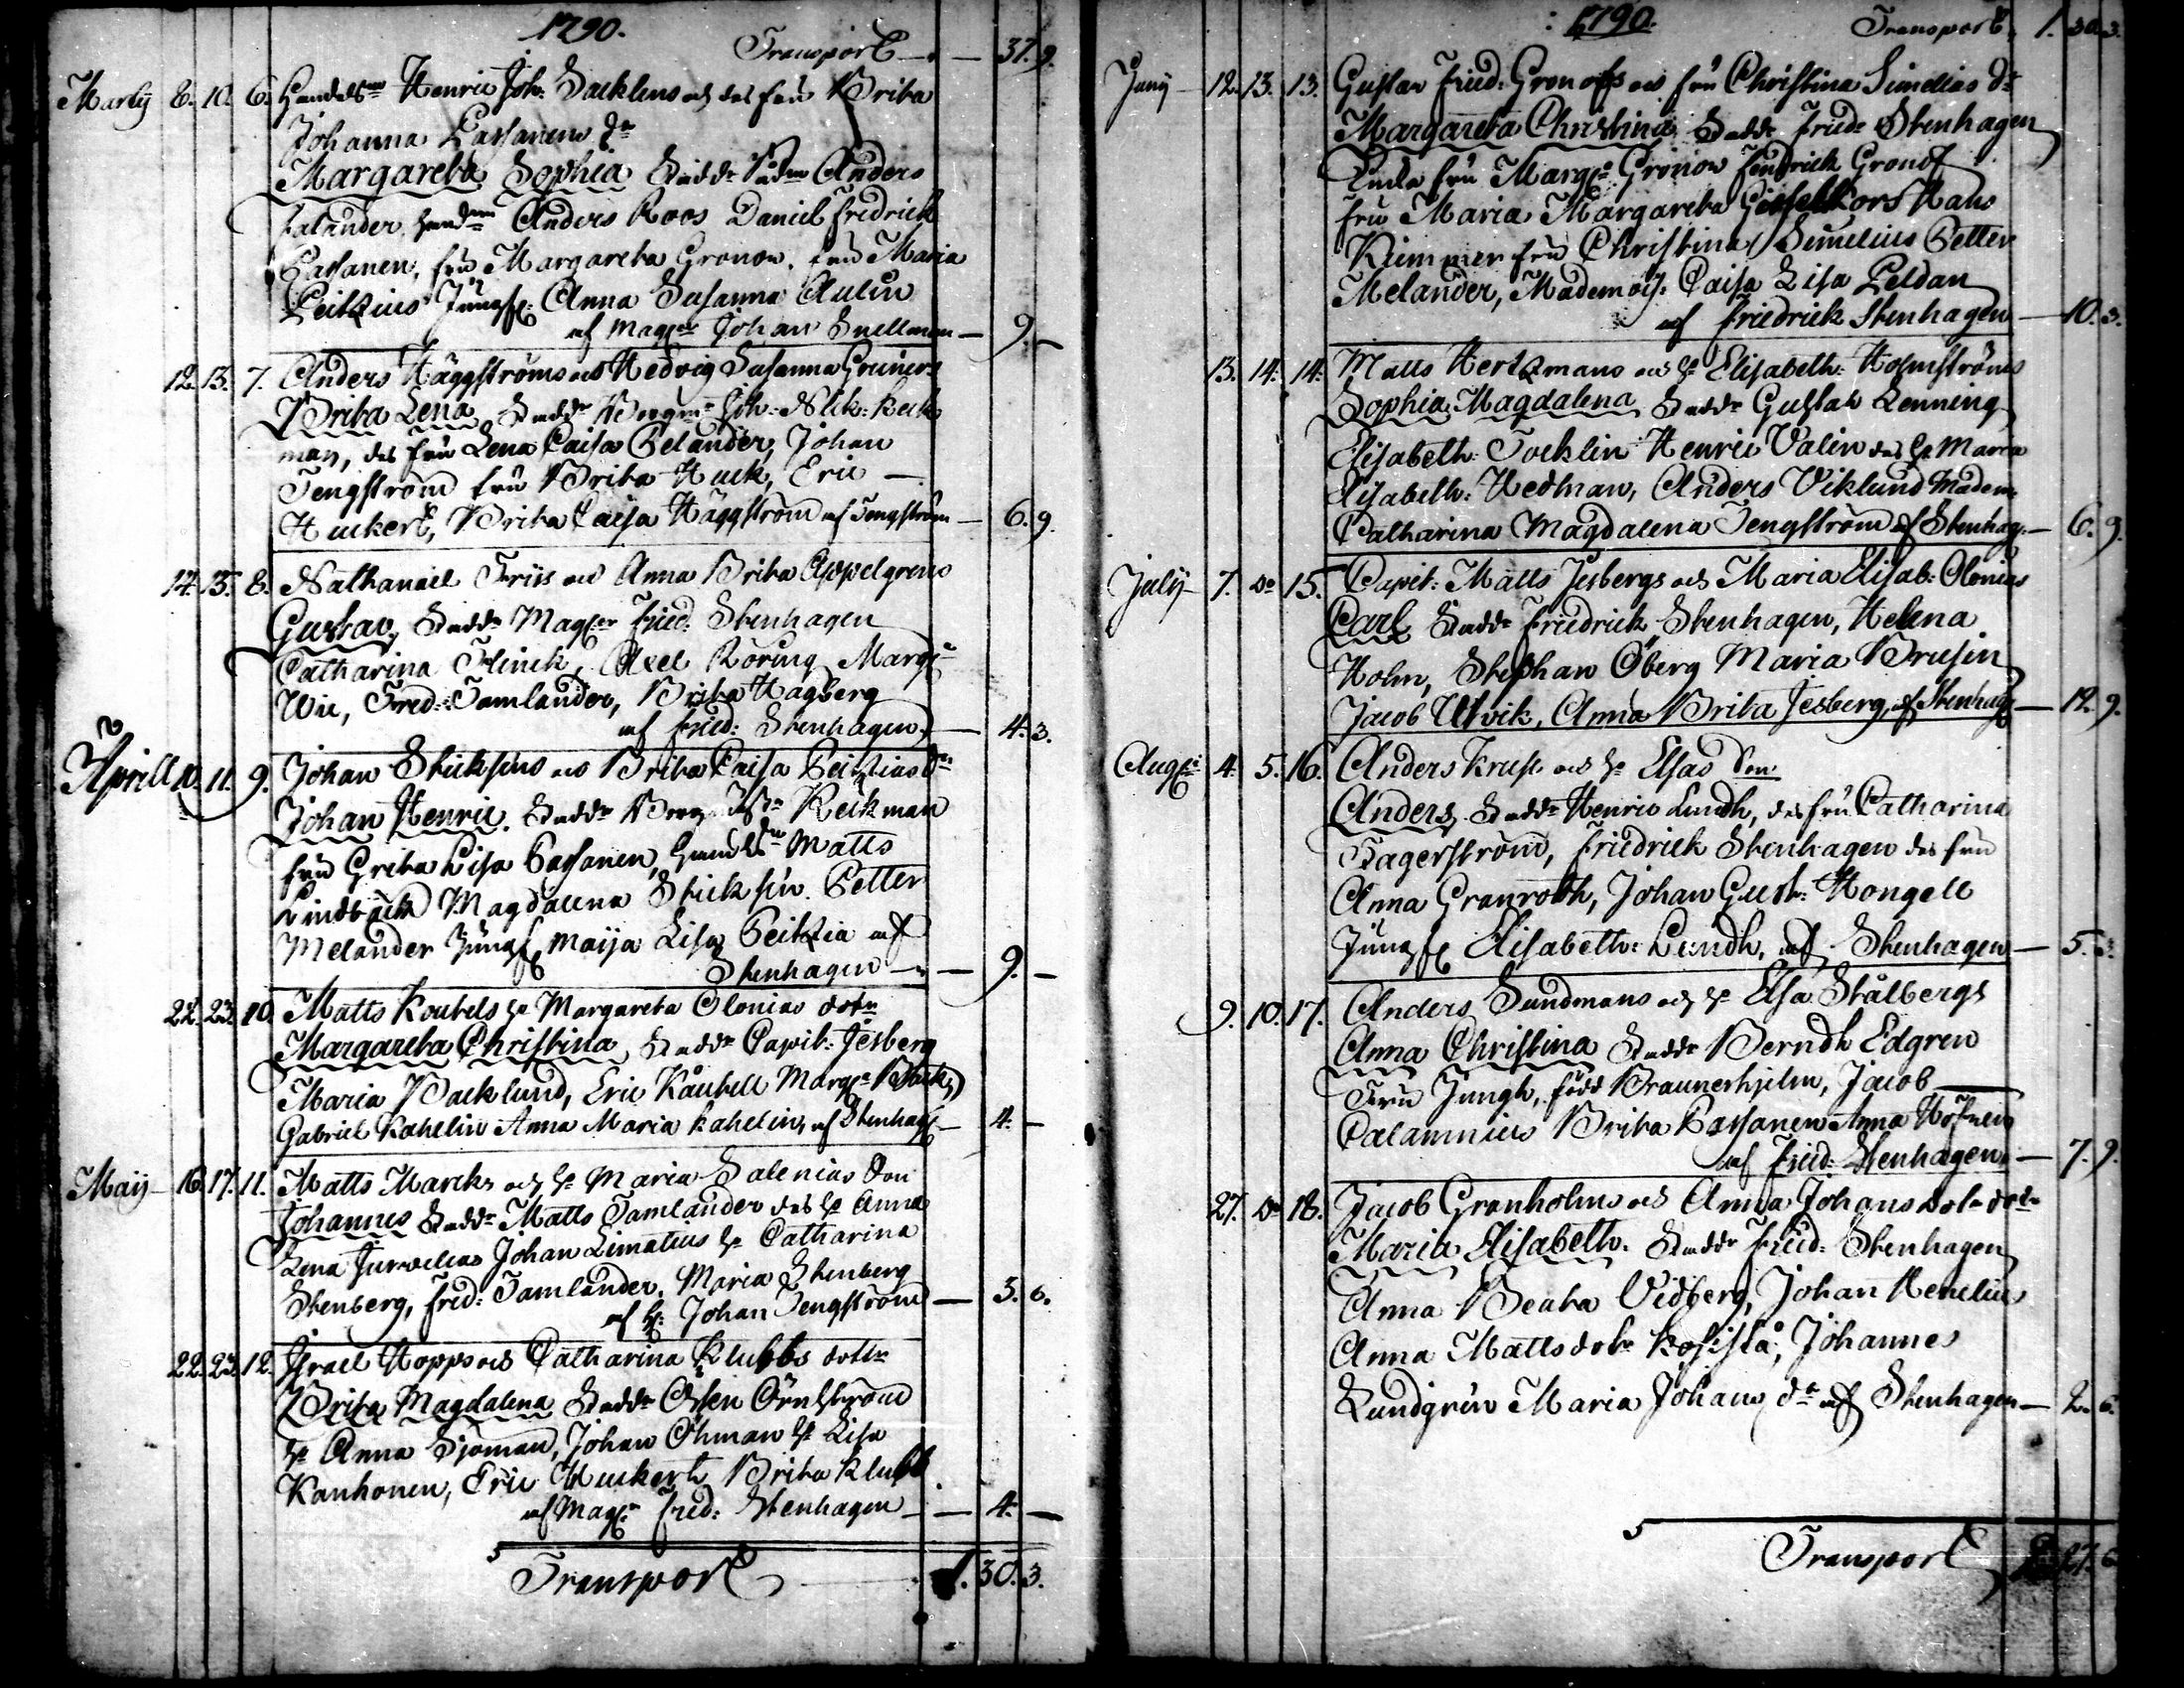 1790.
Transport — 37. 9.
Martij 8. 10. 6. Handelsm Henric Joh: Backlens och des fru Brita
Johanna Cassanens dr
Margareta Sophia Anders
Falander, Handm Anders Roos Daniel Fredrick
Cassanen, fru Margareta Gronow, fru Maria
Peitzius Jungf: Anna Susanna Aulin
af Magr Johan Snellman — 9. —
12. 13. 7. Anders Häggströms och Hedvig Susanna Gruners
Brita Lena Borgm: Joh: Nik: Keck
man, des fru Lena Caisa Belander, Johan
Tengström fru Brita Huck, Eric —
Huckert, Brita Caisa Häggström af Tengström — 6. 9.
14. 15. 8. Nathanael Friis och Anna Brita Appelgrens
Gustav, Magr Fried: Stenhagen
Catharina Flinck, Axel Röring Margta
Wii, Fred: Tamlander, Brita Hagberg
af Fried: Stenhagen — 4. 3.
Aprill 10. 11. 9. Johan Sticksins och Brita Caisa Peitzias
Johan Henric. Keckman
fru Greta Lisa Cassanen, Matts
Lindbäck Magdalena Sticksin Petter
Melander Jungf Maija Lisa Peitzia af
Stenhagen — 9. —
22. 23. 10. Matts Koutels h: Margareta Olonias dotr
Margareta Christina Capit: Jesberg
Maria Backlund, Eric Kåutell Margta Back
Gabriel Kahelin Anna Maria Kahelin, af Stenhag — 4. —
Maij 16. 17. 11. Matts Marcks och h: Maria Salenias Son
Johannes Matts Tamlander des h: Anna
Lena Jurvelius Johan Limatius h: Catharina
Stenberg, Fred: Tamlander, Maria Stenberg
af H: Johan Tengström — 5. 6.
22. 23. 12. Israel Hopps och Catharina Klubbs dottr
Brita Magdalena Örnström
h: Anna Sjöman, Johan Öhman h: Lisa
Kanhonen, Eric Huckert, Brita Klubb
af Magr Fred: Stenhagen — 4. —
Transport 1. 30. 3.
1790.
Transport 1. 30. 3.
Junij 12. 13. 13. Gustav Fried: Gronofs och fru Christina Simelias dr
Margareta Christina Fried: Stenhagen
fru Margta Gronow Hindrick Gronof
fru Maria Margareta Gisselkors Hans
Kümmer fru Christina Simelius Petter
Melander, Mademois: Caisa Lisa Peldan
af Friedrick Stenhagen — 10. 3.
13. 14. 14. Matts Hertzmans och h: Elisabeth: Holmströms
Sophia Magdalena Gustav Lenning
Elisabeth: Tocklin Henric Valin des h: Maria
Elisabeth: Hedman, Anders Viklund Madem:
Catharina Magdalena Tengström af Stenhag: — 6. 9.
Julij 7. Do 15. Capit: Matts Jesbergs och Maria Elisab: Olonias
Carl Friedrick Stenhagen, Helena
Holm, Stephan Öberg Maria Brusin
Jacob Utvik, Anna Brita Jesberg, af Stenhag — 12. 9.
Aug: 4. 5. 16. Anders Kruse och h: Elsas Son
Anders Henric Lundh, des fru Catharina
Fagerström, Friedrick Stenhagen des fru
Anna Granroth, Johan Gust: Hongell
Jungf Elisabeth: Lundh, af Stenhagen — 5. 3.
9. 10. 17. Anders Sundmans och h: Elsa Stålbergs
Anna Christina Berndh Edgren
Fru Jungh, född Braunerhjelm, Jacob —
Calamnius Brita Cassanen Anna Höckert
af Fried: Stenhagen — 7. 9.
27. Do 18. Jacob Granholms och Anna Johans dotr dotr
Maria Elisabeth. Fried: Stenhagen
Anna Beata Vidberg, Johan Henelius
Anna Matts dotr Johannes
Lundgren Maria Johans dr af Stenhagen — 2. 6.
Transport 2. 27. 6.